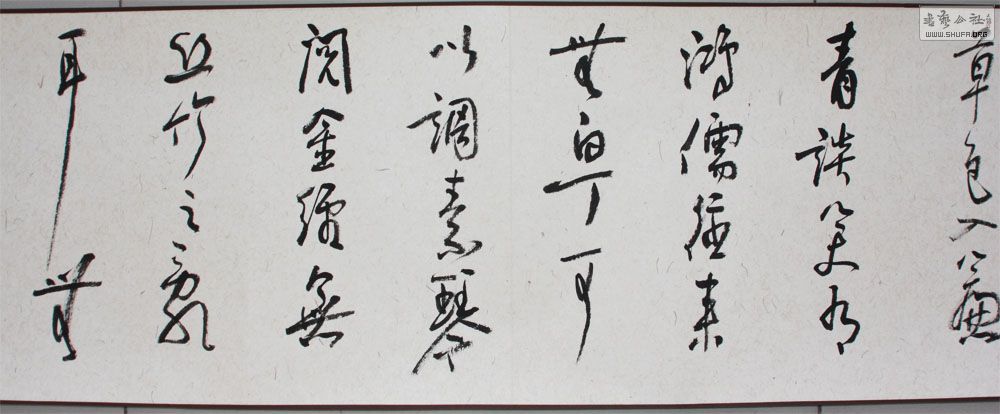 草色入簾
青談笑有
鴻儒往来
無白丁可
以調素琴
閱金經無
丝竹之亂
耳無
書藝公社
WWW.SHUFA.ORG